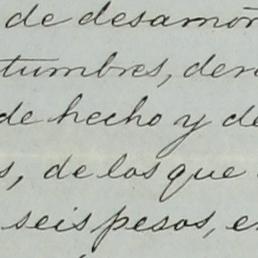 de desamor
tumbres, der
de hecho y de
s, de los que
seis pesos, e